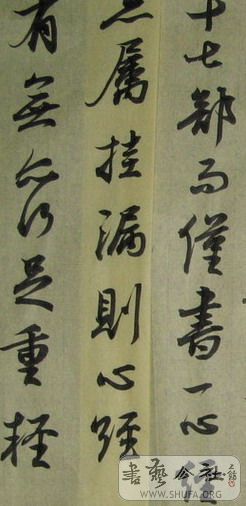 十七部而僅書一心經
属挂漏則心經
有無亦何足重輕
書藝公社
WWW.SHUFA.ORG